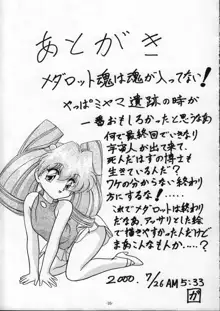 あとがき
メダロット魂は魂が入ってない!
やっぱミヤマ遺跡の時が
一番おもしろかったと思うなあ
何で最終回でいきなり
宇宙人が出て来て、
死人だはずの博士も
生きているんだ?
ワケの分からない終わり
方にするな!
これでメダロットは終わり
だなあ、アッサリとした絵
で描きやすかったんだけど
まあこんなもんか····?
2000. 7/26 AM 5:33